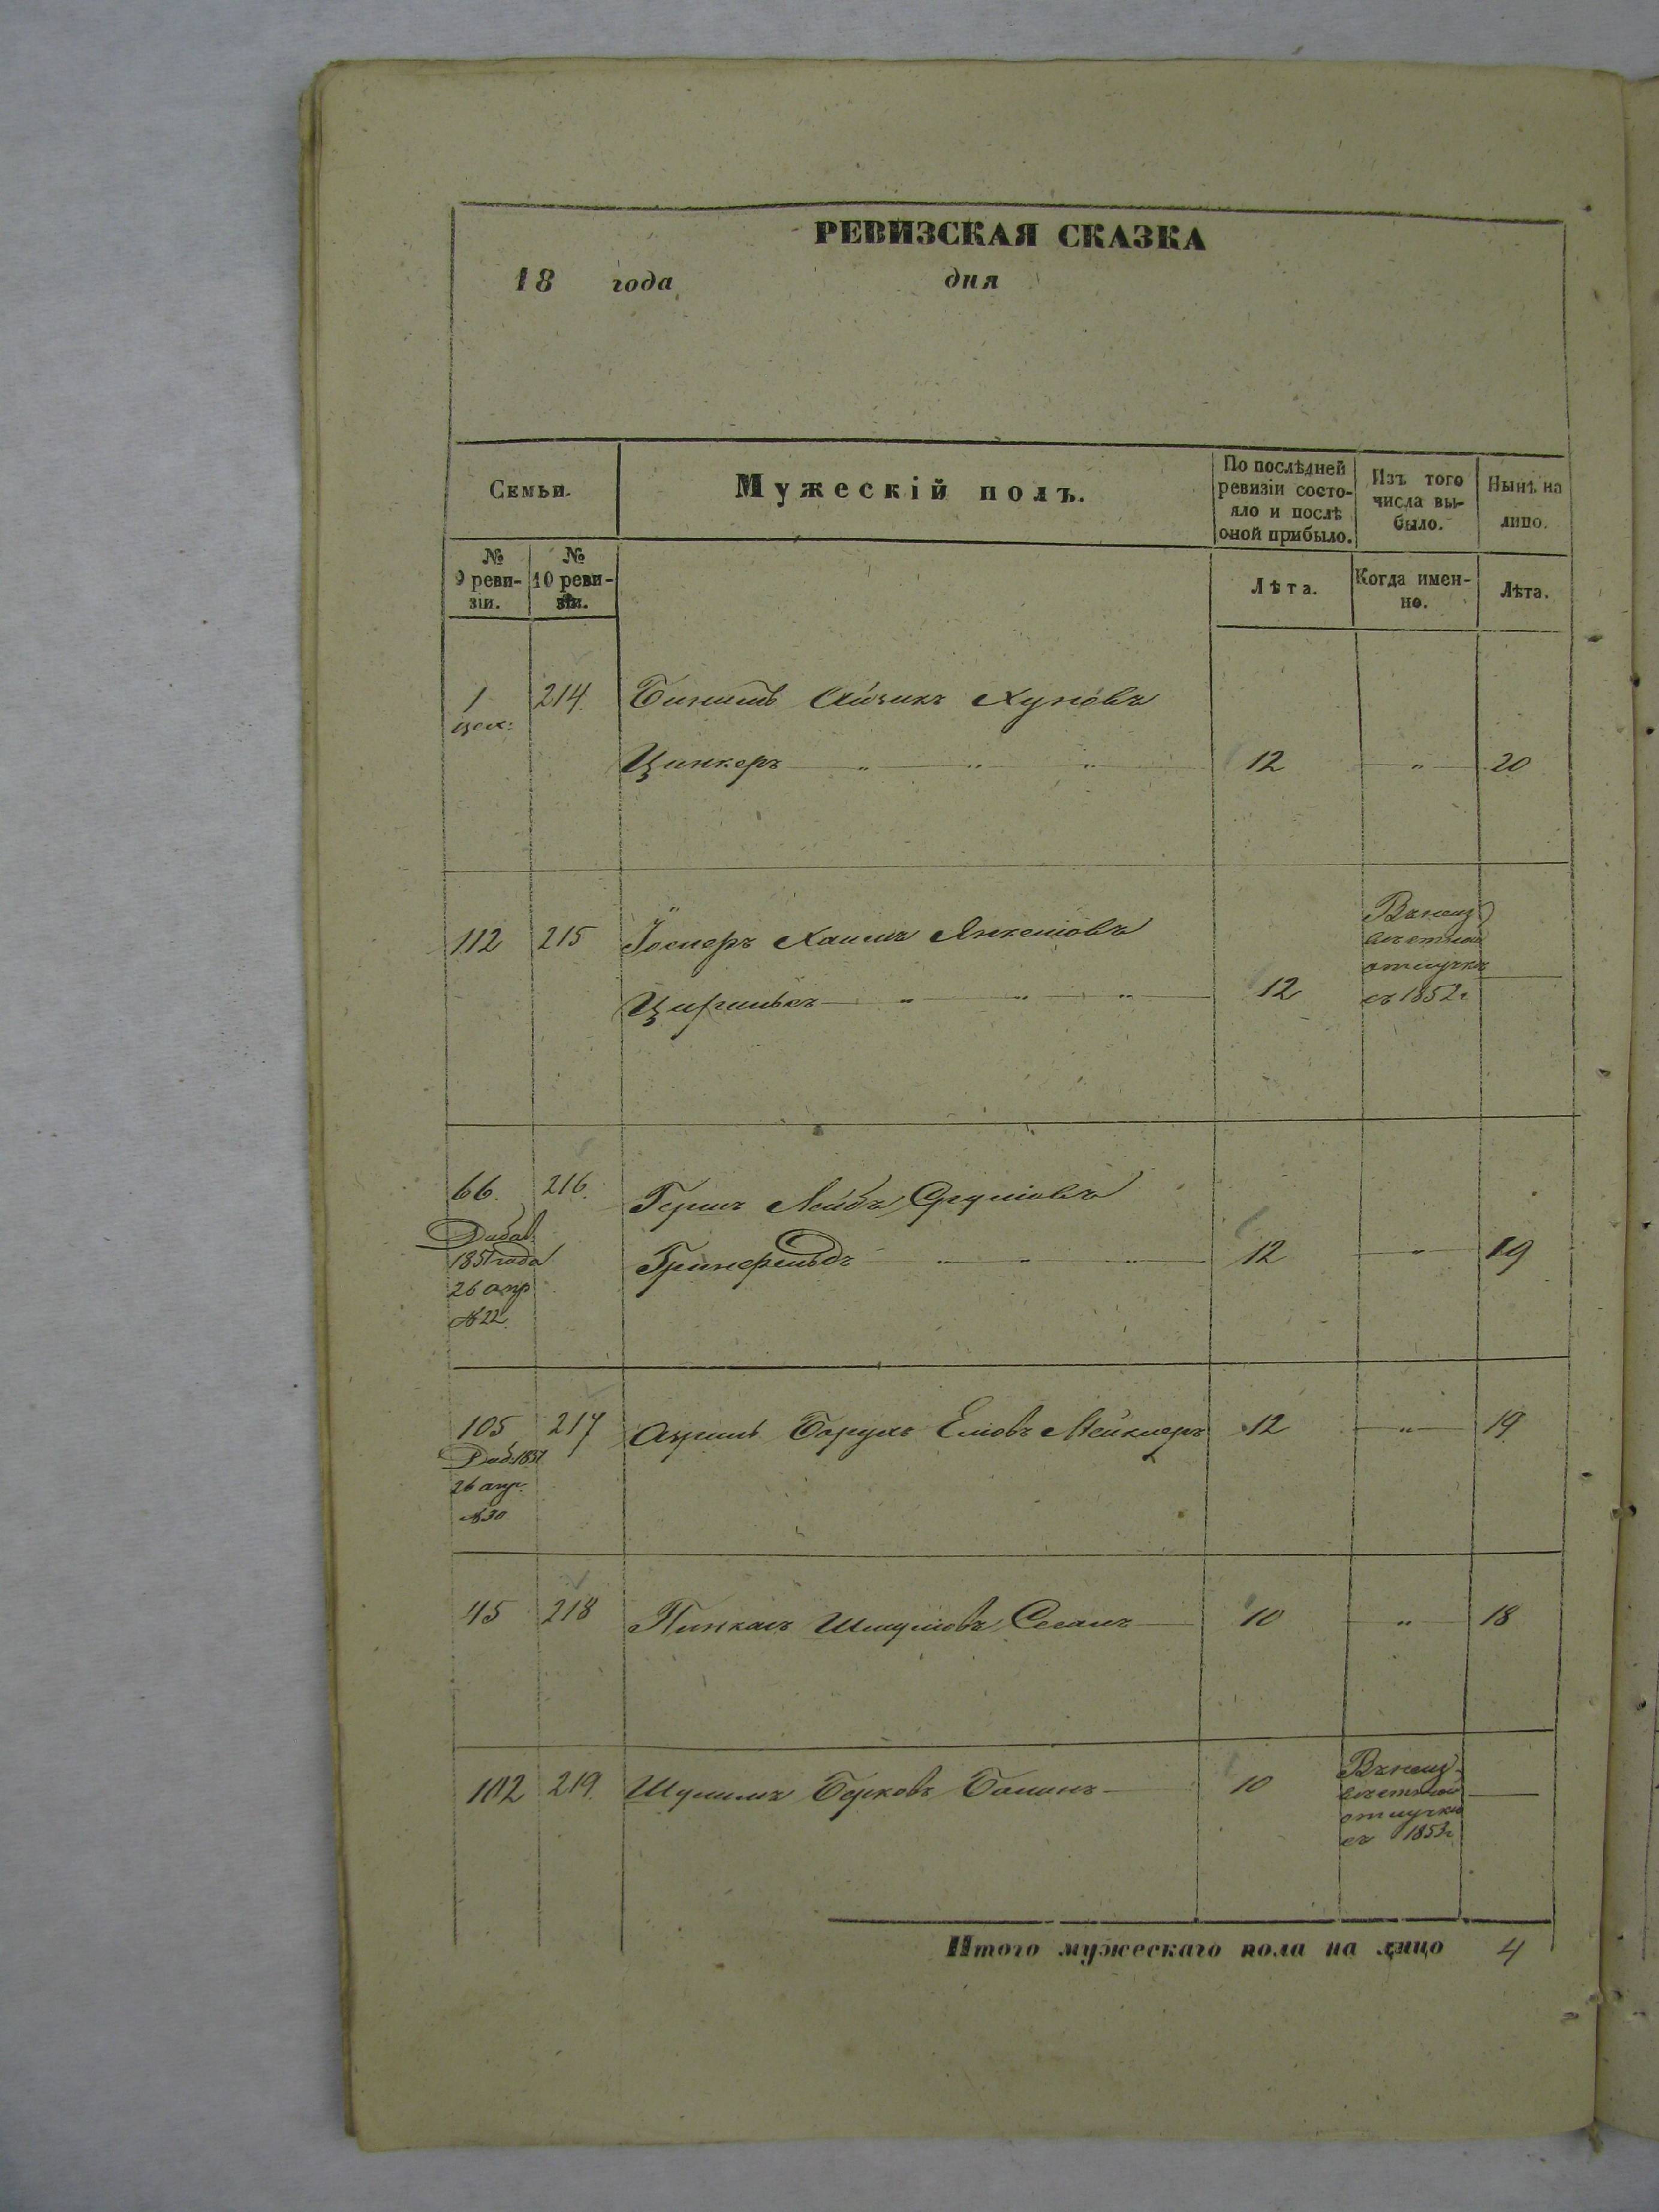 РЕВИЗСКАЯ СКАЗКА
18 года дня
Семьи.
Мужескій полъ.
По послѣдней ревизіи состояло и послѣ оной прибыло.
Изъ того числа выбыло.
Нынѣ на лицо.
№ 9 ревизіи.
№ 10 ревизіи.
Лѣта.
Когда именно.
Лѣта.
1 214.
Айзикъ
Цинкеръ 12 " 20
112 215 Хаимъ Янкеліовъ
12
Въ неиз
вѣстной
отлучкѣ
съ 1852 г
66. 216. Гершъ Лейбъ Сруліовъ
Добав.
1851 года
26 апр
№ 22.
Гринфельдъ 12 " 19
105 217 Борухъ Еліовъ 12 " 19
Доб. 1851
26 апр.
№ 30
45 218 Пинкасъ Шмуліовъ Сегалъ 10 " 18
102 219. Шулимъ Берковъ 10
Въ неиз-
вѣстной
отлучкѣ
съ 1853 г
Итого мужескаго пола на лицо 4